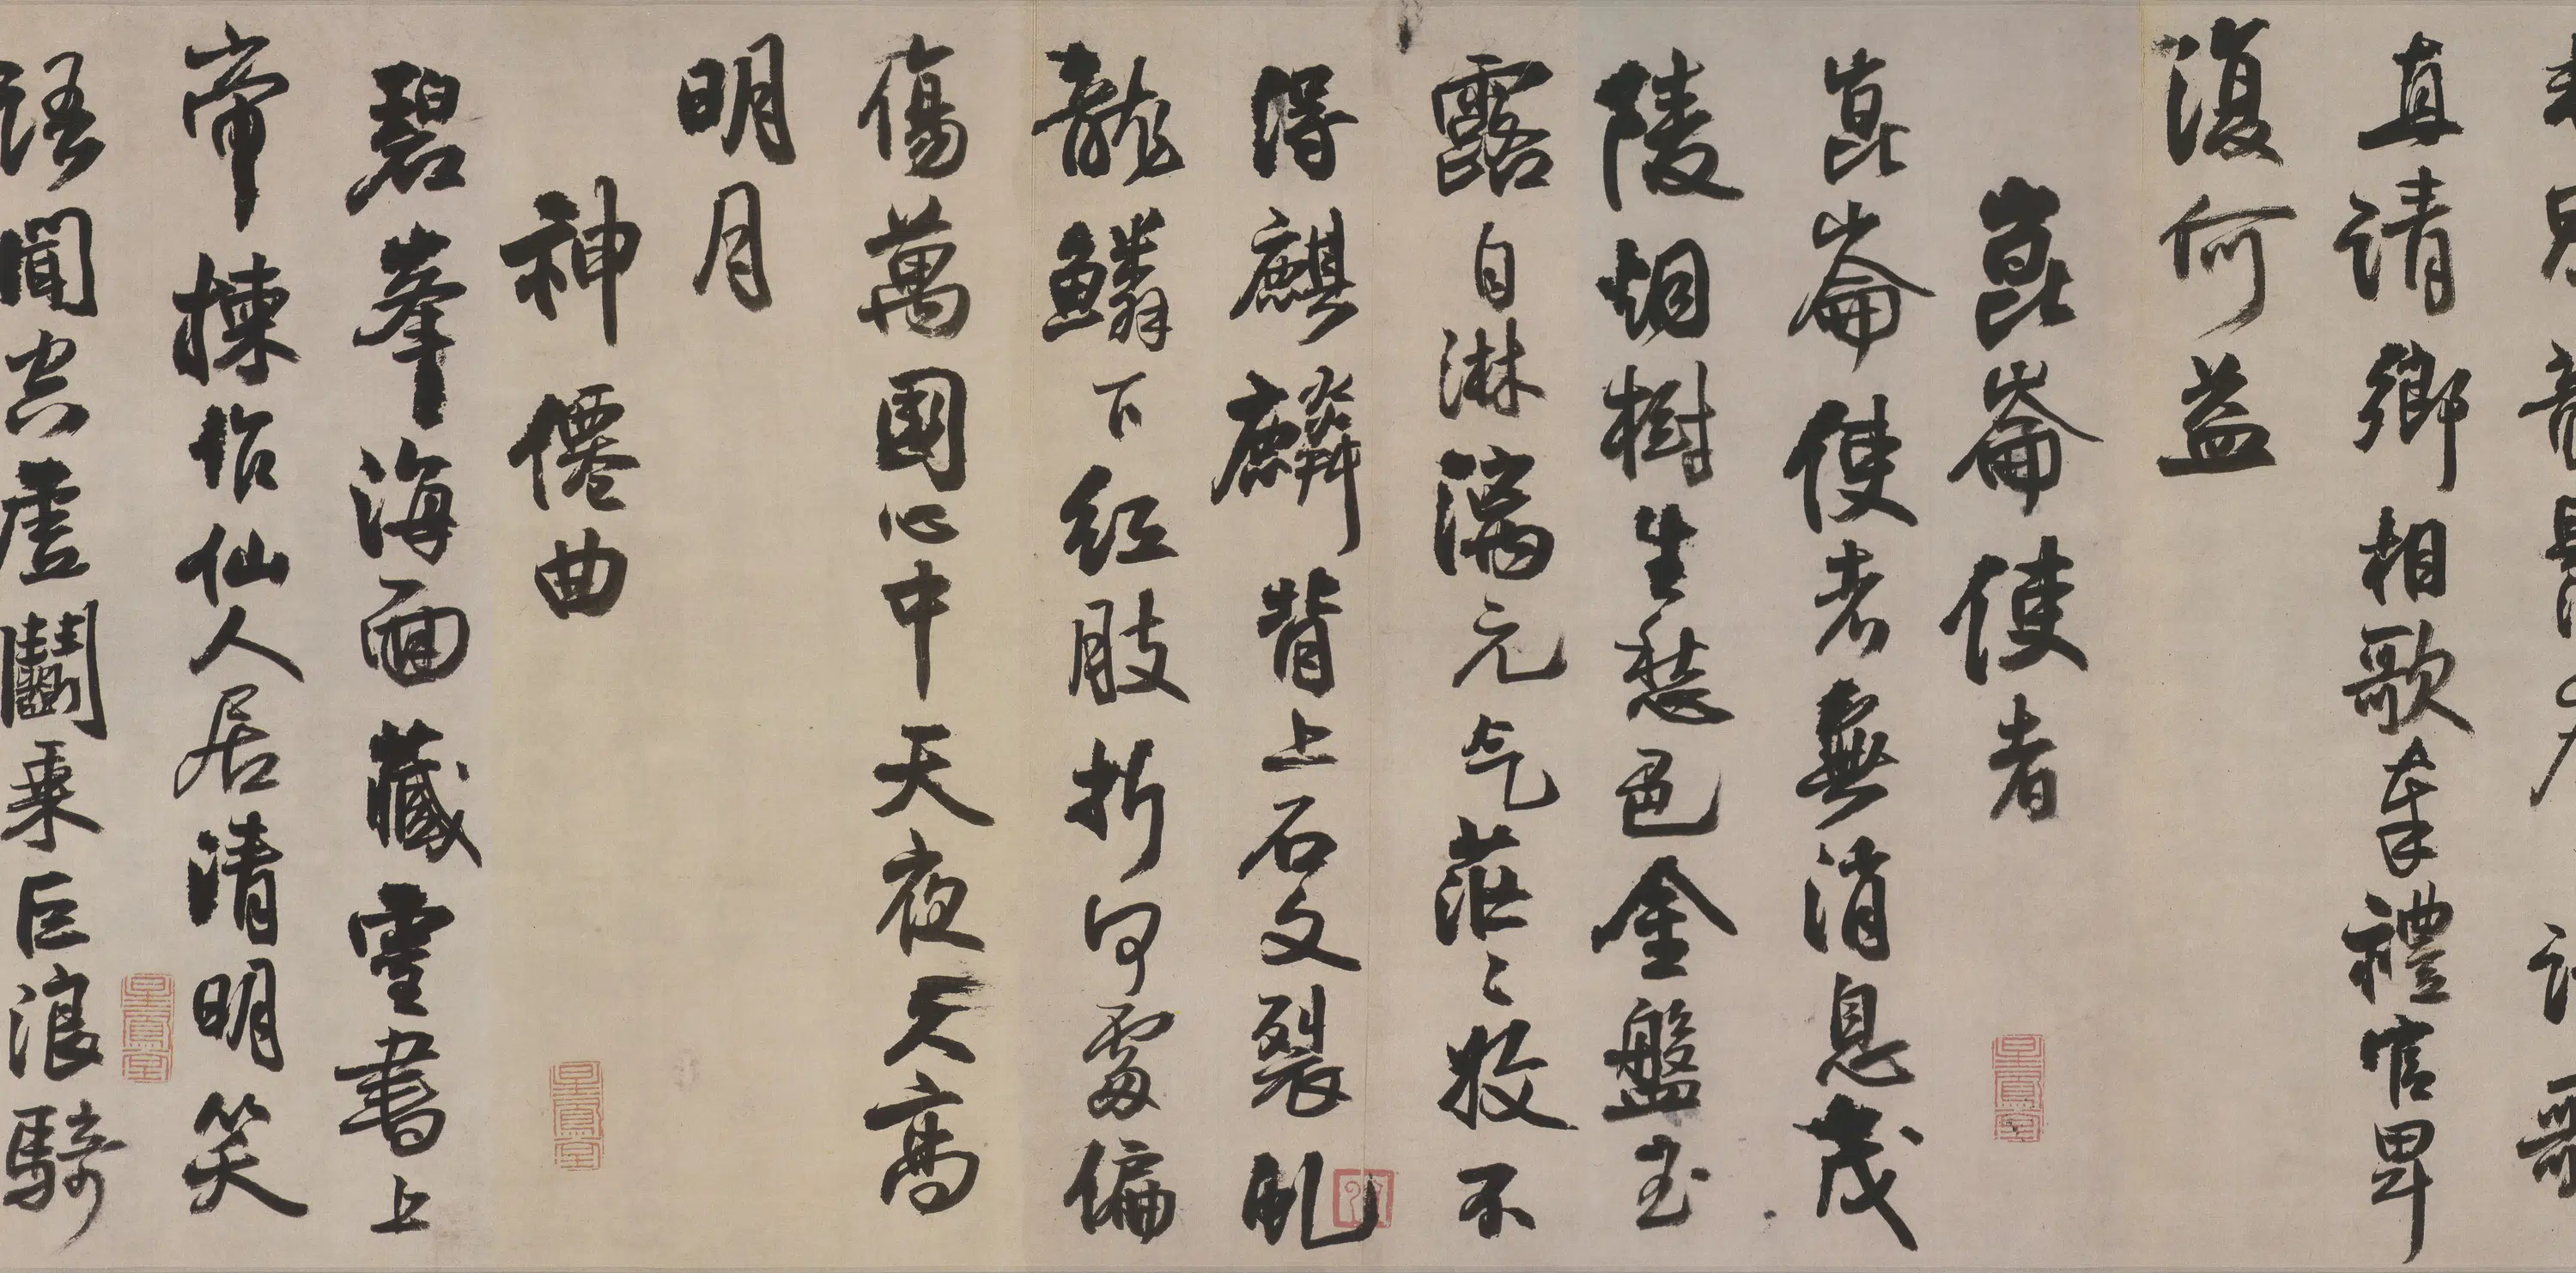 直請卿相歌奉禮官卑
復何益
崑崙使者
崑崙使者無消息茂
陵烟樹生愁色金盤玉
露自淋漓元气茫〻收不
得麒麟背上石文裂虬
龍鱗下紅肢折何處偏
傷萬國心中天夜久高
明月
神僊曲
碧峯海面藏靈書上
帝揀作仙人居清明笑
語聞空虛鬬乘巨浪騎